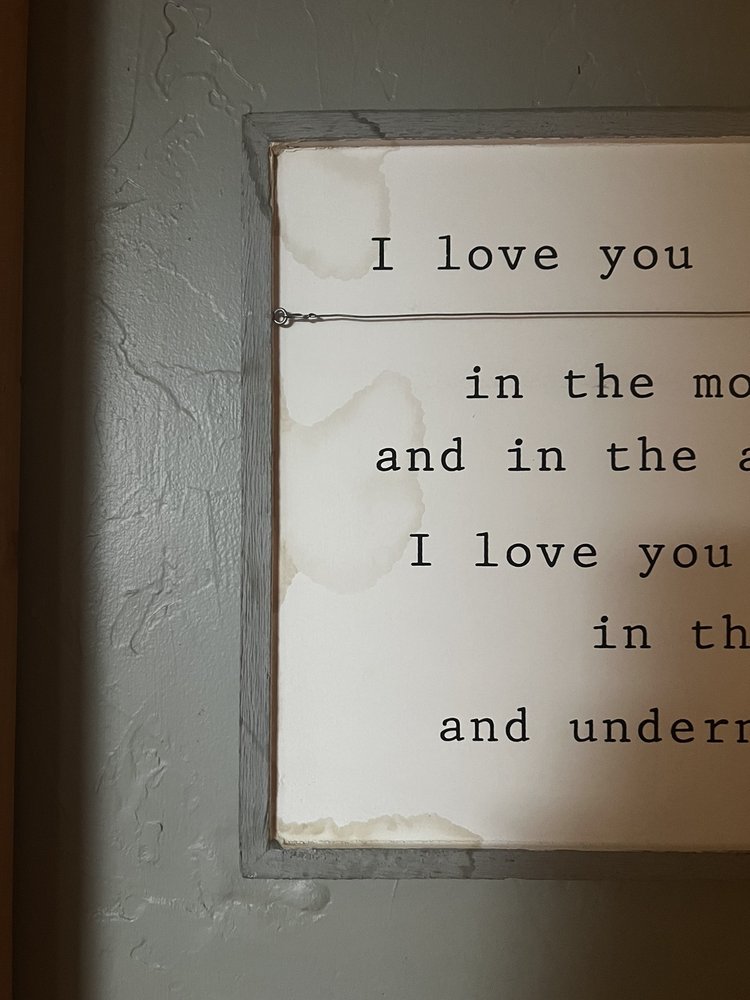 I love you
in the mo
and in the a
I love you
in th
and undern